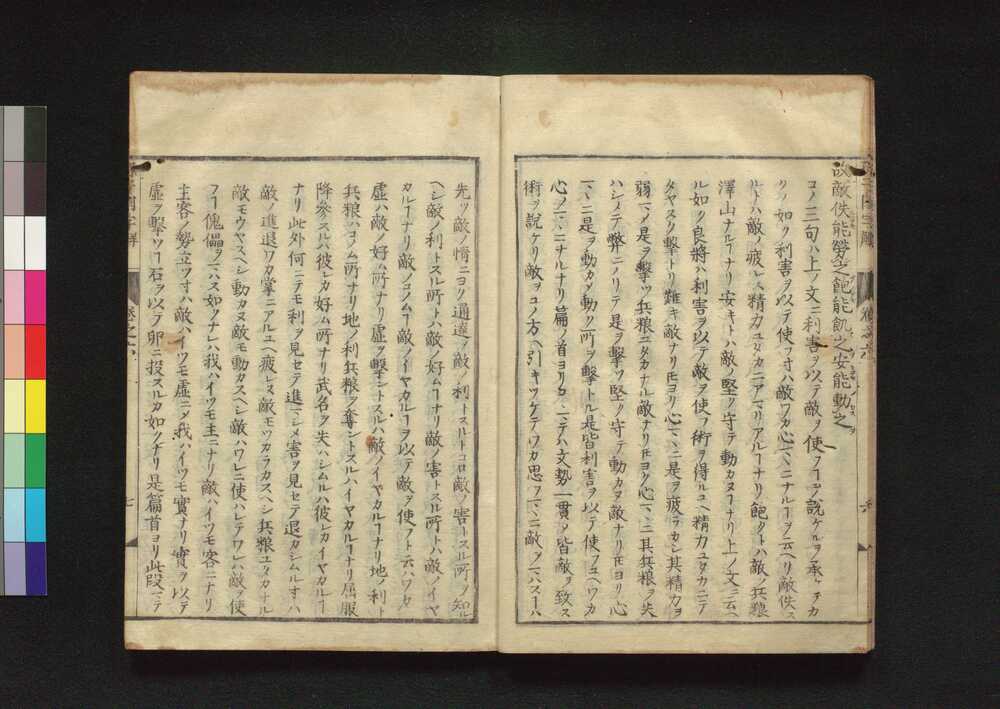 故敵佚能勞之飽能飢之安能動之
コノ三句ハ上ノ文ニ利害ヲ以テ敵ヲ使フヿヲ説ケルヲ承テカ
クノ如ク利害ヲ以テ使フ寸ハ敵ワカ心ノマヽニナルヿヲ云ヘリ敵佚ス
ルトハ敵ノ疲レス精力ユタカニアマリアルヿナリ飽タトハ敵ノ兵粮
澤山ナルヿナリ安キトハ敵ノ堅ク守テ動カヌヿナリ上ノ文ニ云ヘ
ル如ク良將ハ利害ヲ以テ敵ヲ使フ術ヲ得ルユヘ精力ユタカニテ
タヤスク擊トリ難キ敵ナリ𪜈ヨリ心ノマヽニ是ヲ疲ラカシ其精力ヲ
弱マメ是ヲ擊ツ兵粮ユタカナル敵ナリ𪜈ヨク心ノマヽニ其兵粮ヲ失
ハシメテ弊ニノリテ是ヲ擊ツ堅ク守テ動カヌ敵ナリ𪜈ヨリ心
ノマヽニ是ヲ動カメ動ク所ヲ擊トル是皆利害ヲ以テ使フユヘワカ
心ノマヽニナルナリ篇ノ首ヨリココマテハ文勢一貫メ皆敵ヲ致ス
術ヲ說ケリ敵ヲコノ方ヘ引キツケテワカ思フマヽニ敵ヲマハスヿハ
先ツ敵ノ情ニヨク通達メ敵ノ利トスルトコロ敵ノ害トスル所ヲ知ル
ヘシ敵ノ利トスル所トハ敵ノ好ムヿナリ敵ノ害トスル所トハ敵ノイヤ
カルヿナリ敵ノコノムヿ敵ノイヤカルヿヲ以テ敵ヲ使フト云ハワカ
虛ハ敵ノ好ム所ナリ虛ヲ擊ントスルハ敵ノイヤカルヿナリ地ノ利ト
兵粮ハコノム所ナリ地ノ利兵粮ヲ奪ントスルハイヤカルヿナリ屈服
降參スルハ彼レカ好ム所ナリ武名ヲ失ハシムルハ彼レカイヤカルヿ
ナリ此外何ニテモ利ヲ見セテ進マシメ害ヲ見セテ退カシムル寸ハ
敵ノ進退ワカ掌ニアルユヘ疲レヌ敵モワカラカスヘシ兵粮ユタカナル
敵モウヤスヘシ動カヌ敵モ動カスヘシ敵ハワレニ使ハレテワレハ敵ヲ使
フヿ傀儡ヲマハス如クナレハ我ハイツモ主ニナリ敵ハイツモ客ニナリ
主客ノ勢立ツ寸ハ敵ハイツモ虛ニメ我ハイツモ實ナリ實ヲ以テ
虛ヲ擊ツヿ石ヲ以テ卵ニ投スルカ如クナリ是篇首ヨリ此段マテ